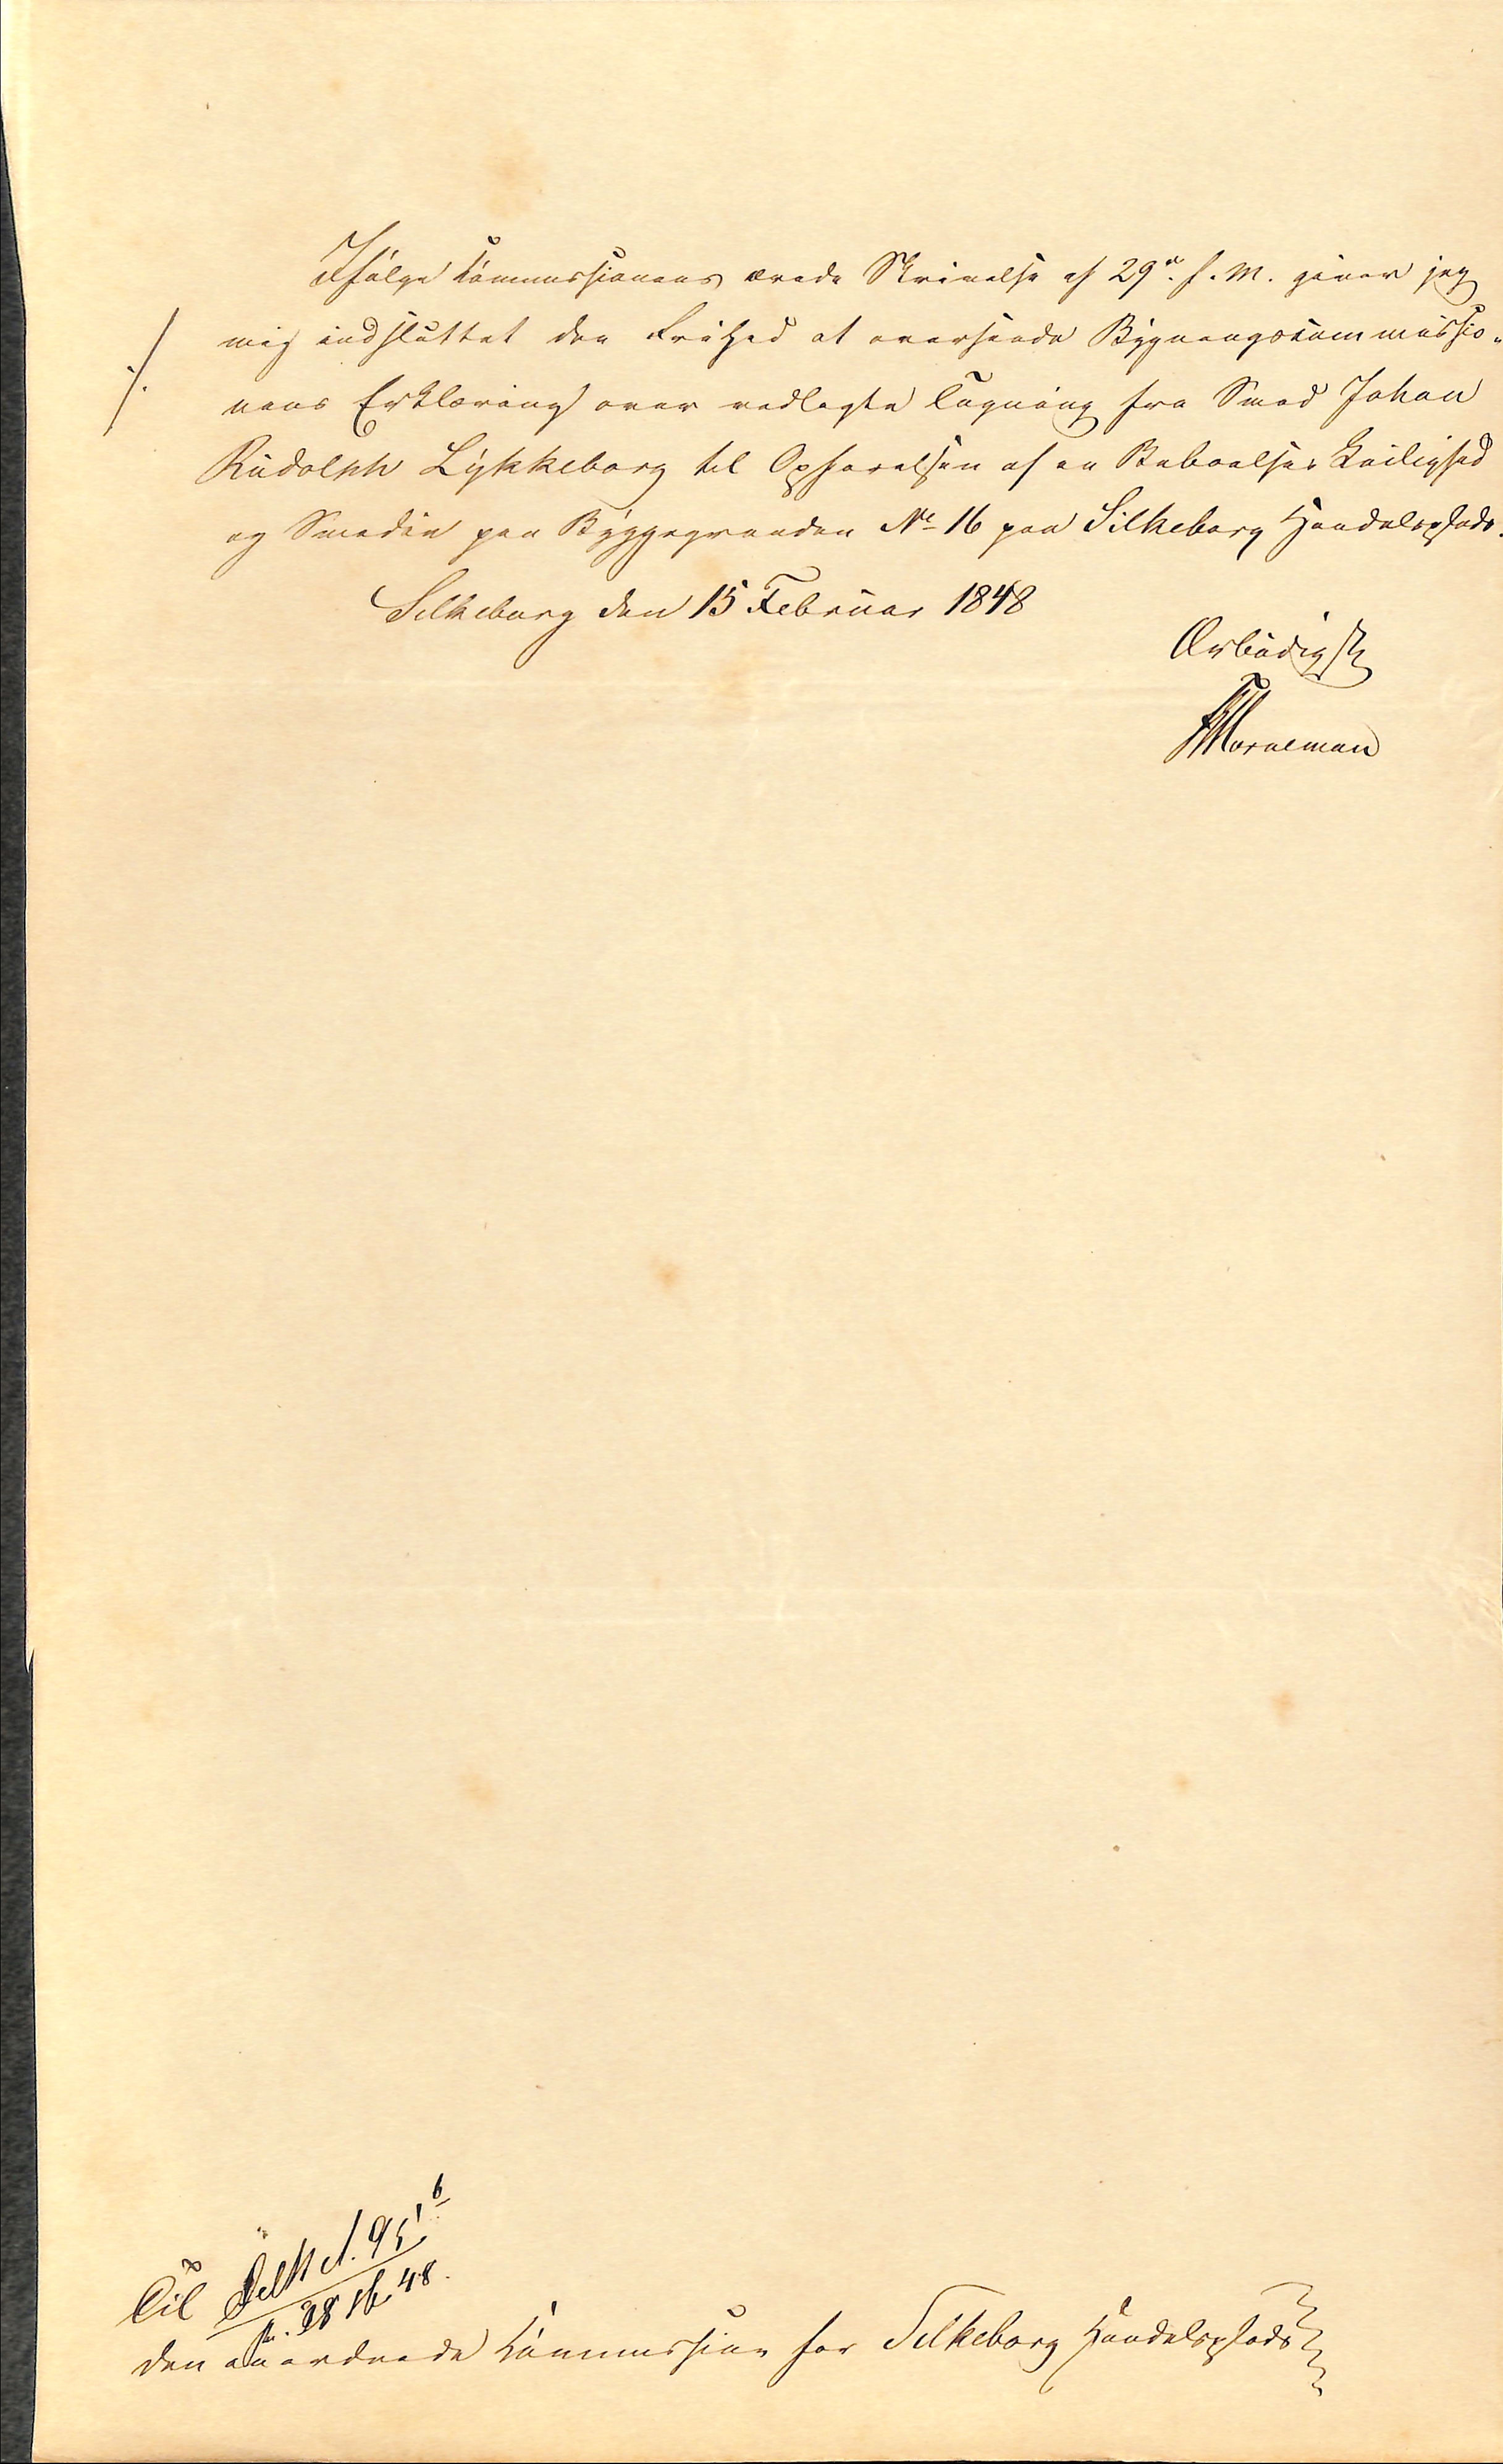 Ifølge Kommissionens ærede Skrivelse af 29de f. M. giver jeg
mig indsluttet den Frihed at oversende Bygningskommissio-
nens Erklæring over vedlagte Tegning fra Smed Johan
Rudolph Lykkeborg til Opførelsen af en Beboelses Leilighed
og Smedie paa Byggegrunden No 16 paa Silkeborg Handelsplads.
Silkeborg den 15 Februar 1848
Ærbødigst
Til
den anordnede Kommission for Silkeborg Handelsplads